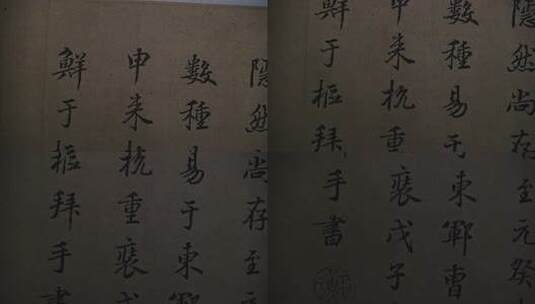 隱然尚存至
數種易于東鄆
申来杭重裝戊
鮮于樞拜手書
隱然尚存至元癸
數種易于東鄆曹
申来杭重裝戊子
鮮于樞拜手書